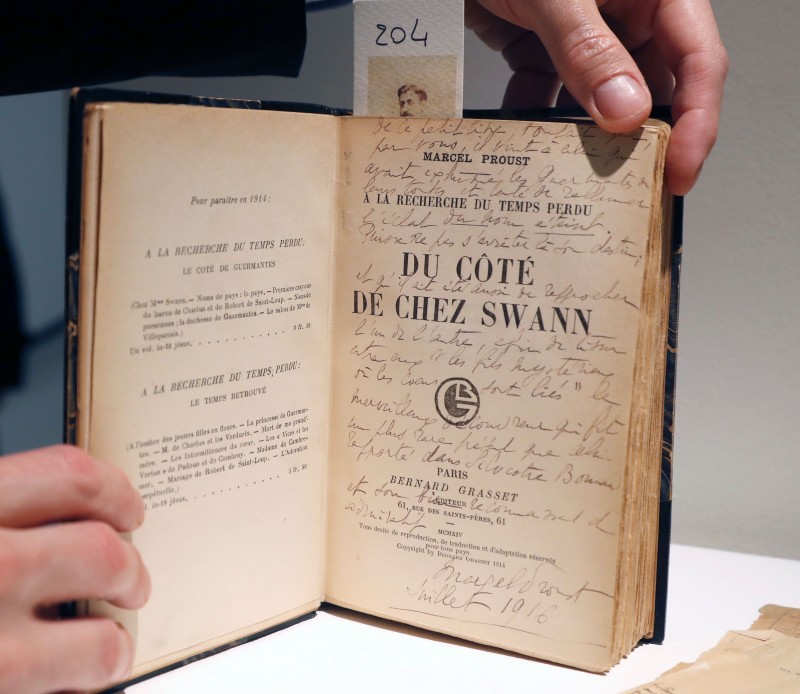 204
Pour paraître en 1914 :
A LA RECHERCHE DU TEMPS PERDU:
LE COTÉ DE GUERMANTES
(Chez Mme Swann. — Noms de pays : le pays. — Premiers crayons
du baron de Charlus et de Robert de Saint-Loup. — Noms de
personnes : la duchesse de Guermantes. — Le salon de Mme de
Villeparisis.)
Un vol. in-18 jésus, . . . . . . . . . . . 3 fr. 50
A LA RECHERCHE DU TEMPS PERDU:
LE TEMPS RETROUVÉ
(A l'ombre des jeunes filles en fleurs. — La princesse de Guerman-
tes. — M. de Charlus et les Verdurin. — Mort de ma grand'-
mère. — Les Intermittences du cœur. — Les « Vices et les
Vertus » de Padoue et de Combray. — Madame de Cambre-
mer. — Mariage de Robert de Saint-Loup. — L'Adoration
perpétuelle.)
vol. in-18 jésus, . . . . . . . . . . . 3 fr. 50
de ce petit
par vous, il vint à celui qui
MARCEL PROUST
avait les Guermantes de
leurs et de rallumer
A LA RECHERCHE DU TEMPS PERDU
l'éclat du nom éteint.
Puisse ne pas s'arrêter là son destin,
DU CÔTÉ
et qu'il ait été choisi de rapprocher
DE CHEZ SWANN
l'un de l'autre, afin de tisser
entre eux "les fils mystérieux
où les cœurs sont liés" le
BG
merveilleux donateur qui fit
un plus rare présent que celui
PARIS
rapporté dans Silvestre Bonnard
BERNARD GRASSET
et son bien reconnaissant
ÉDITEUR
61, RUE DES SAINTS-PÈRES, 61
admiratif
MCMXIV
Tous droits de reproduction, de traduction et d'adaptation réservés
pour tous pays.
Copyright by BERNARD GRASSET 1914
Marcel Proust
Juillet 1916